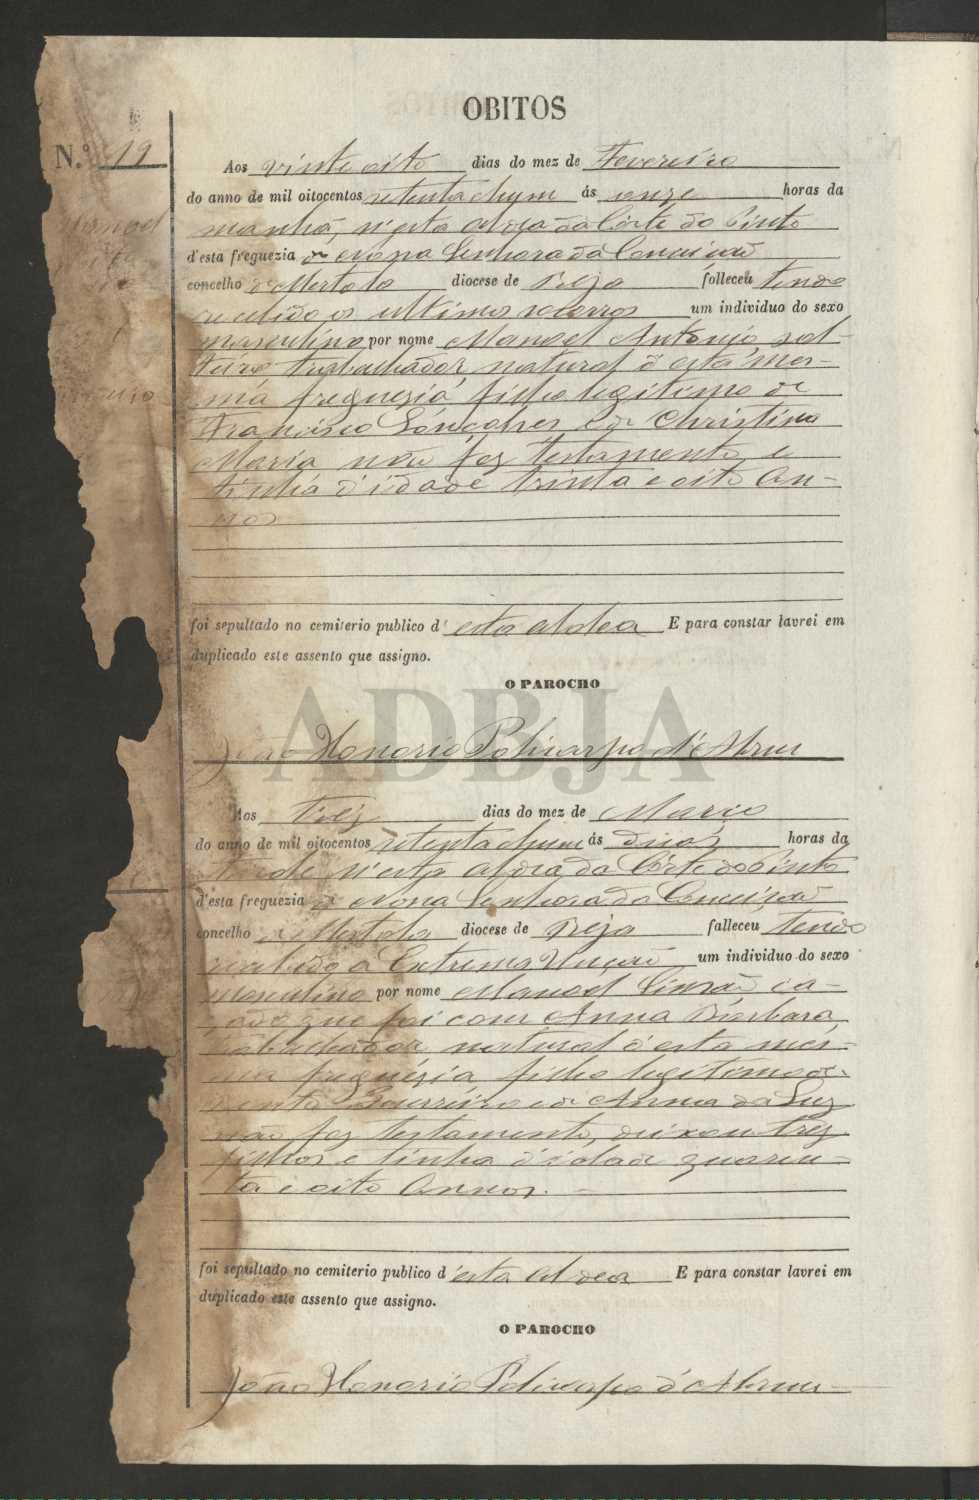 OBITOS
N.º 19
Aos vinte oito dias do mez de Fevereiro
do anno de mil oitocentos setenta e hum ás onze horas da
manhã, n'esta Aldea da Côrte do Pinto
d'esta freguezia de Nossa Senhora da Conceicão
concelho de Mertola diocese de Beja folleceu tendo
recebido os ultimos socorros um individuo do sexo
masculino por nome Manoel Antonio, sol-
teiro trabalhador, natural d'esta mes-
ma freguezia, filho legitimo de
Francisco Gonçalves e de Christina
Maria não fez testamento e
tinha d'idade trinta e oito an-
nos
foi sepultado no cemiterio publico d'esta aldea E para constar lavrei em
duplicado este assento que assigno.
O PAROCHO
João Honorio Policarpo d'Abreu
ADBJA
Aos trez dias do mez de Março
do anno de mil oitocentos setenta e hum ás duas horas da
tarde n'esta Aldea da Côrte do Pinto
d'esta freguezia de Nossa Senhora da Conceição
concelho de Mertola diocese de Beja falleceu tendo
recebido a Extrema Unção um individuo do sexo
masculino por nome Manoel Simão, ca-
zado que foi com Anna Barbara,
trabalhador natural d'esta mes-
ma freguezia filho legitimo de
Bento Guerreiro e de Anna da Luz
não fez testamento, deixou trez
filhos e tinha d'idade quaren-
ta e oito annos.
foi sepultado no cemiterio publico d'esta Aldea E para constar lavrei em
duplicado este assento que assigno.
O PAROCHO
João Honorio Policarpo d'Abreu